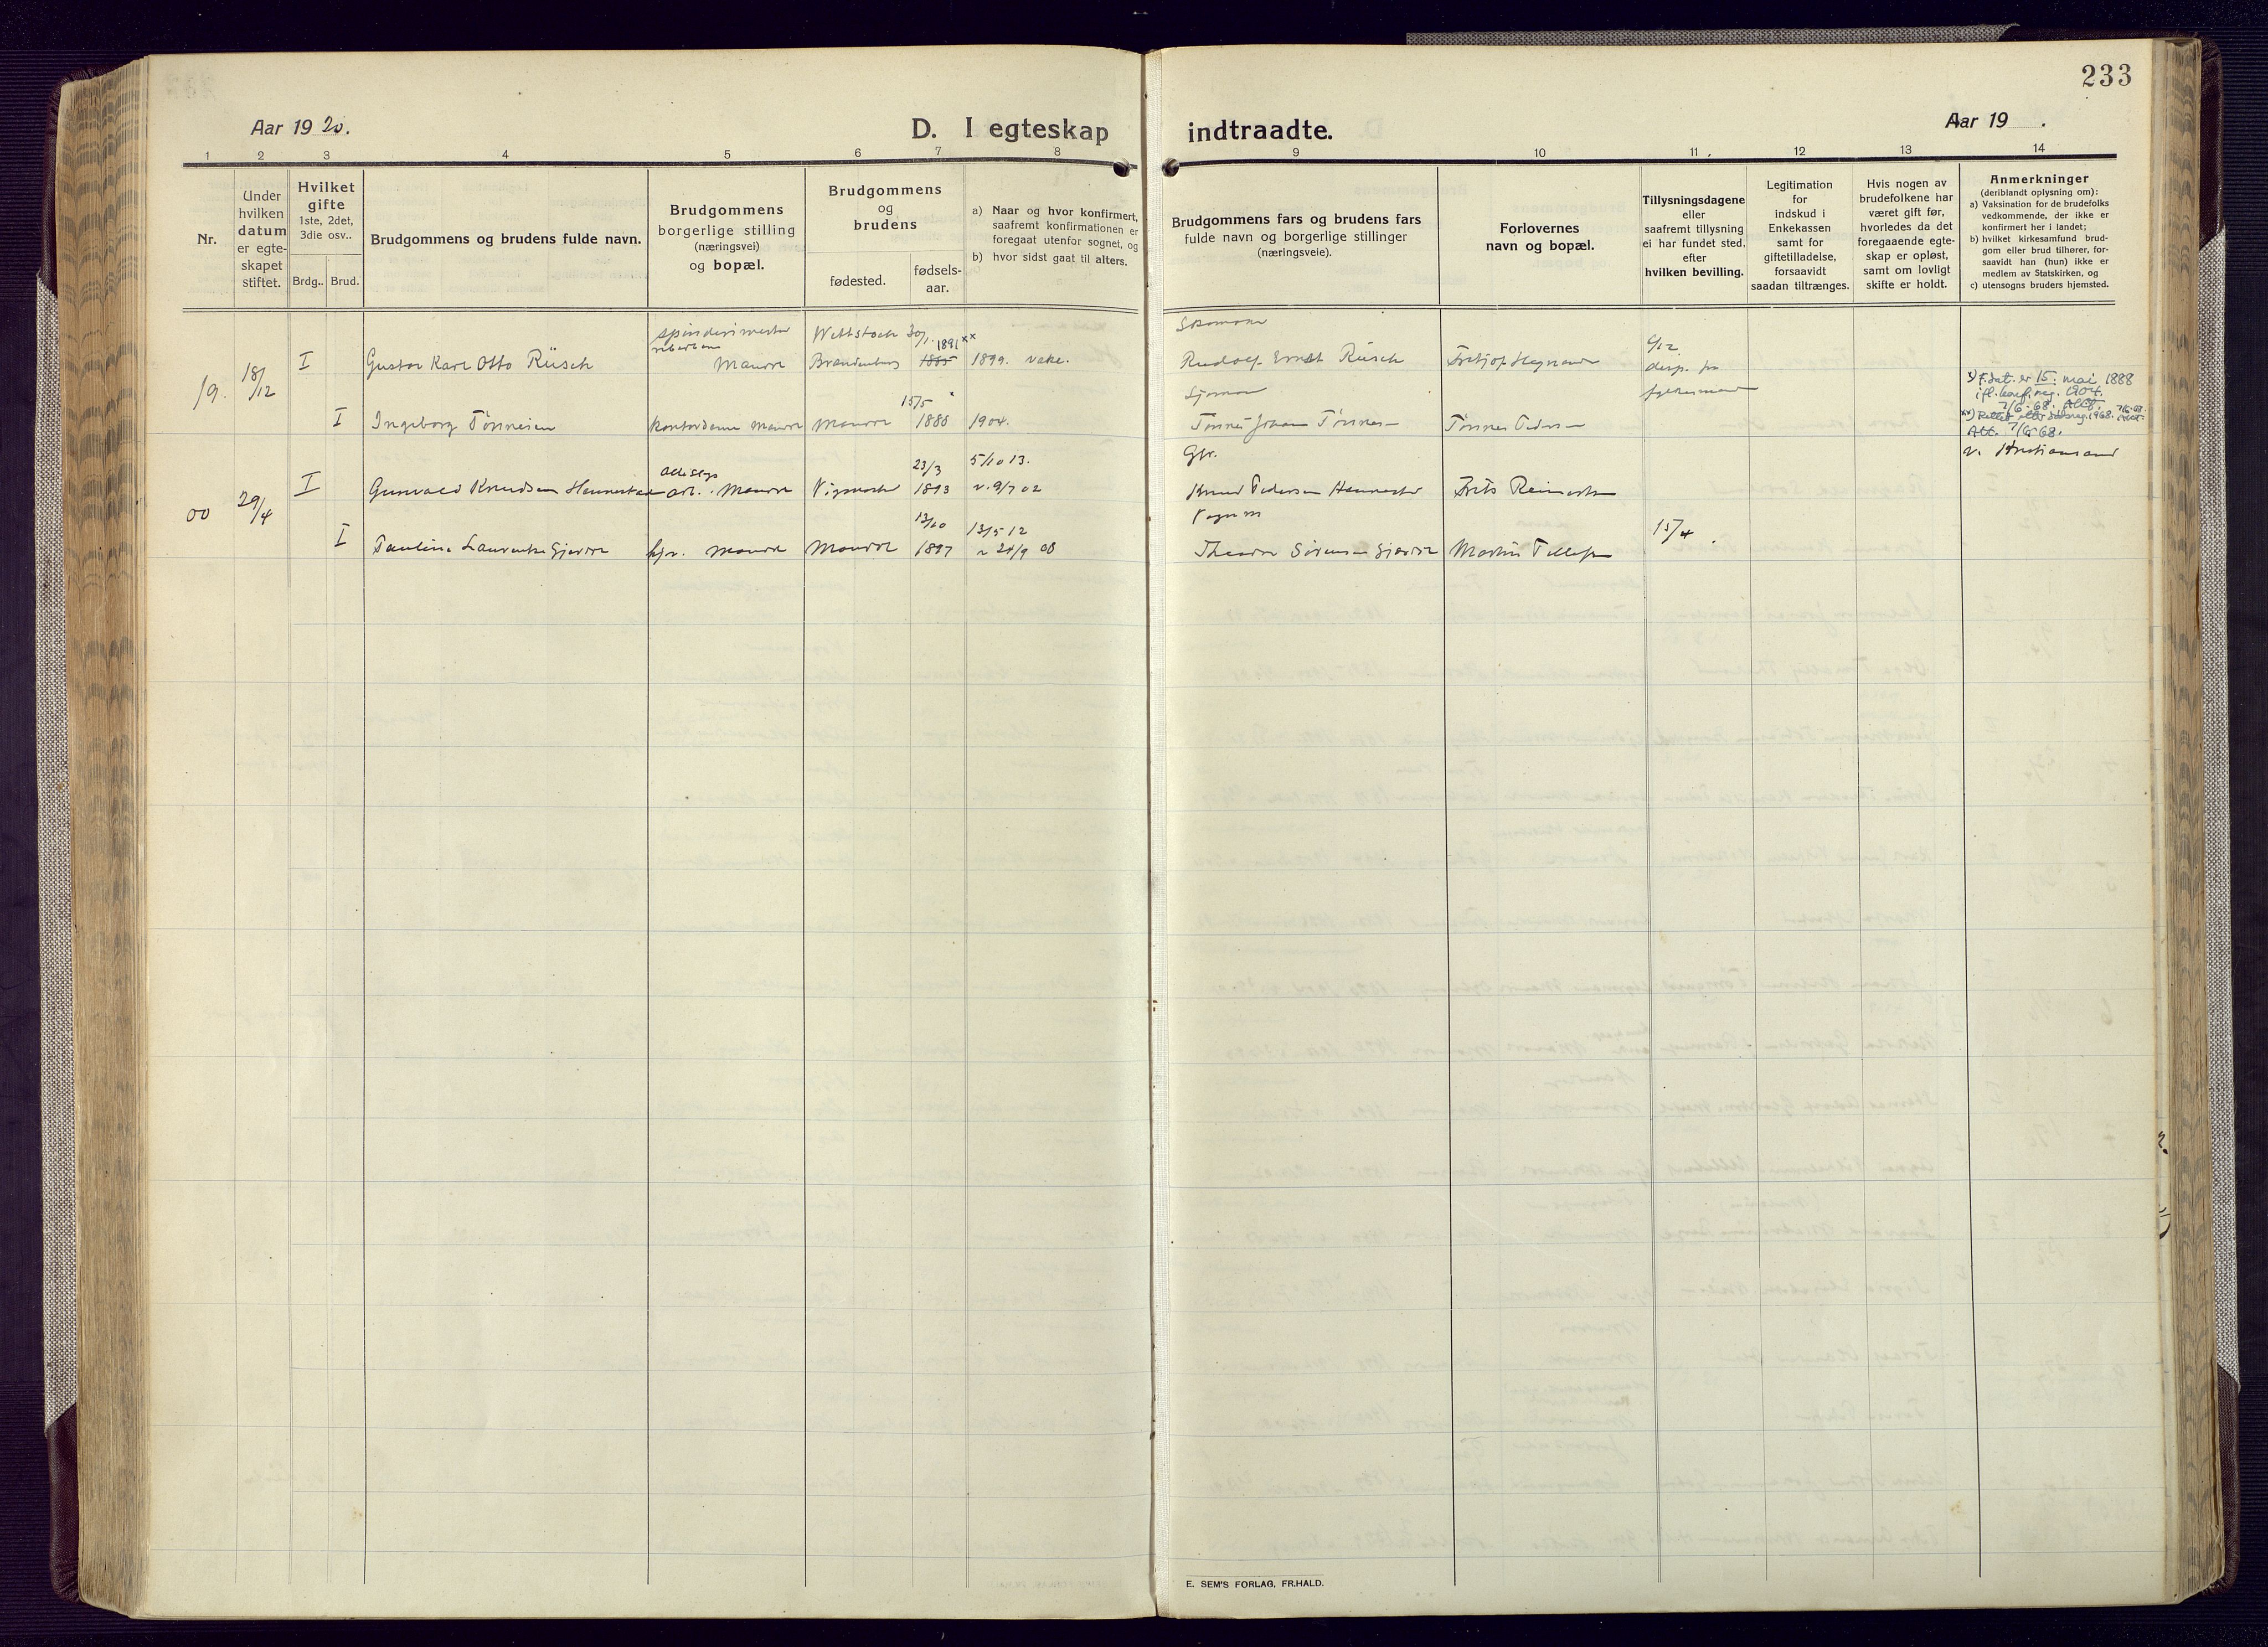 233
Aar 1920.
D. I egteskap indtraadte.
Aar 19 .
1 2 3 4 5 6 7 8 9 10 11 12 13 14
Nr.
Under
hvilken
datum
er egte-
skapet
stiftet.
Hvilket
gifte
1ste, 2det,
3die osv..
Brdg.. Brud.
Brudgommens og brudens fulde navn.
Brudgommens
borgerlige stilling
(næringsvei)
og bopæl.
Brudgommens
og
brudens
fødested.
fødsels-
aar.
a) Naar og hvor konfirmert,
saafremt konfirmationen er
foregaat utenfor sognet, og
b) hvor sidst gaat til alters.
Brudgommens fars og brudens fars
fulde navn og borgerlige stillinger
(næringsveie).
Forlovernes
navn og bopæl.
Tillysningsdagene
eller
saafremt tillysning
ei har fundet sted,
efter
hvilken bevilling.
Legitimation
for
indskud i
Enkekassen
samt for
giftetilladelse,
forsaavidt
saadan tiltrænges.
Hvis nogen av
brudefolkene har
været gift før,
hvorledes da det
foregaaende egte-
skap er opløst,
samt om lovligt
skifte er holdt.
Anmerkninger
(deriblandt oplysning om):
a) Vaksination for de brudefolks
vedkommende, der ikke er
konfirmert her i landet;
b) hvilket kirkesamfund brud-
gom eller brud tilhører, for-
saavidt han (hun) ikke er
medlem av Statskirken, og
c) utensogns bruders hjemsted.
19. 18/12 I Gustav Karl Otto Rüsch
spinderimester
Mandal
Wittstock
Brandenburg
30/1 1891 xx
1885
1899.
Rudolf Ernst Rüsch
9/12
disp. fra
I Ingeborg Tønnesen
kontordame Mandal Mandal
15/5
1888
1904.
Sjømann
Tønnes Johan Tønnesen
Tønnes Pedersen
x) F.dat. er 15. mai 1888
ifl. konf.reg. 1904.
7/6-68.
7/6 68.
v. Kristiansand
00 29/4 I Gunvald Knudsen Hennestad
Mandal
23/3
1893
5/10 13.
v. 9/7 02
Gbr.
Knud Pedersen Hennestad
I Pauline Laurentse Gjerdre
hjv. Mandal Mandal
13/10
1897
13/5 12
v 24/9 08
Theodor Sørensen Gjerdre
Martin Tellefsen
15/4.
E. SEM'S FORLAG, FR.HALD.